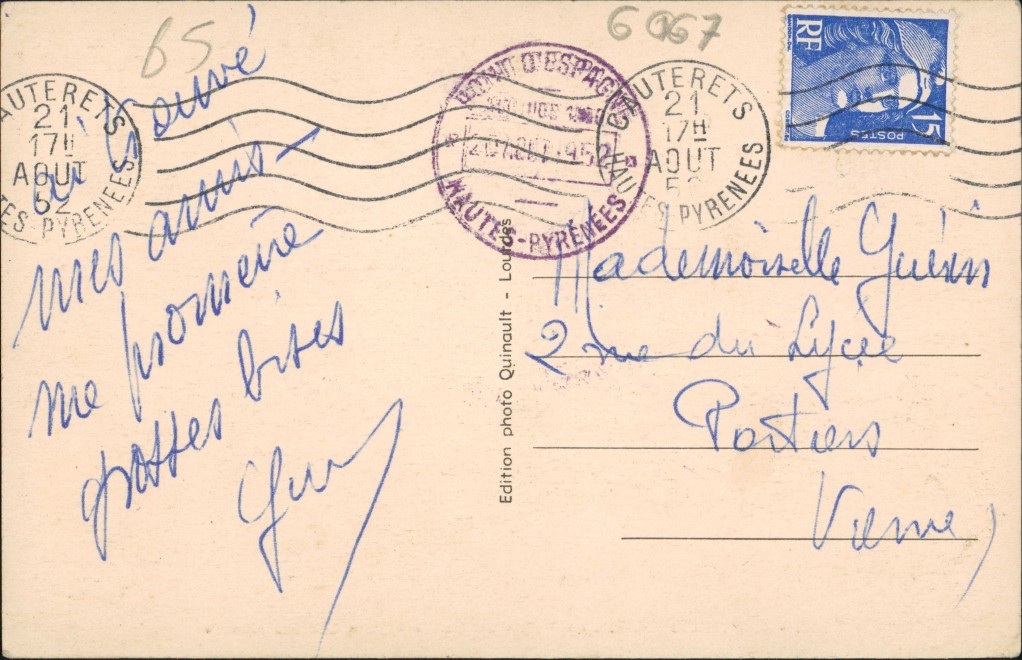 65
6067
CAUTERETS
21
17H
AOUT
52
HAUTES-PYRENEES
PONT D'ESPAGNE
1952
HAUTES-PYRÉNÉES
CAUTERETS
21
17H
AOUT
52
HAUTES-PYRENEES
RF
POSTES
15F
ai trouvé
mes amis -
me promène
grosses bises
Guy
Edition photo Quinault - Lourdes
Mademoiselle Guérin
2 rue du Lycée
Poitiers
Vienne)